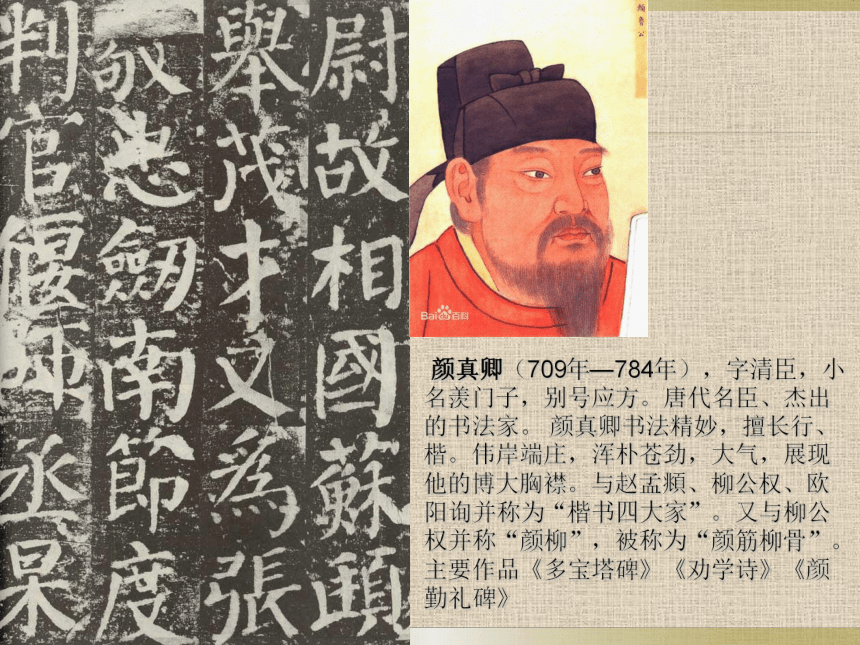 尉故相國蘇頲
舉茂才又爲張
敬忠劒南節度
判官偃師丞杲
顏魯公
Bai百科
颜真卿（709年—784年），字清臣，小
名羡门子，别号应方。唐代名臣、杰出
的书法家。 颜真卿书法精妙，擅长行、
楷。伟岸端庄，浑朴苍劲，大气，展现
他的博大胸襟。与赵孟頫、柳公权、欧
阳询并称为“楷书四大家”。又与柳公
权并称“颜柳”，被称为“颜筋柳骨”。
主要作品《多宝塔碑》《劝学诗》《颜
勤礼碑》